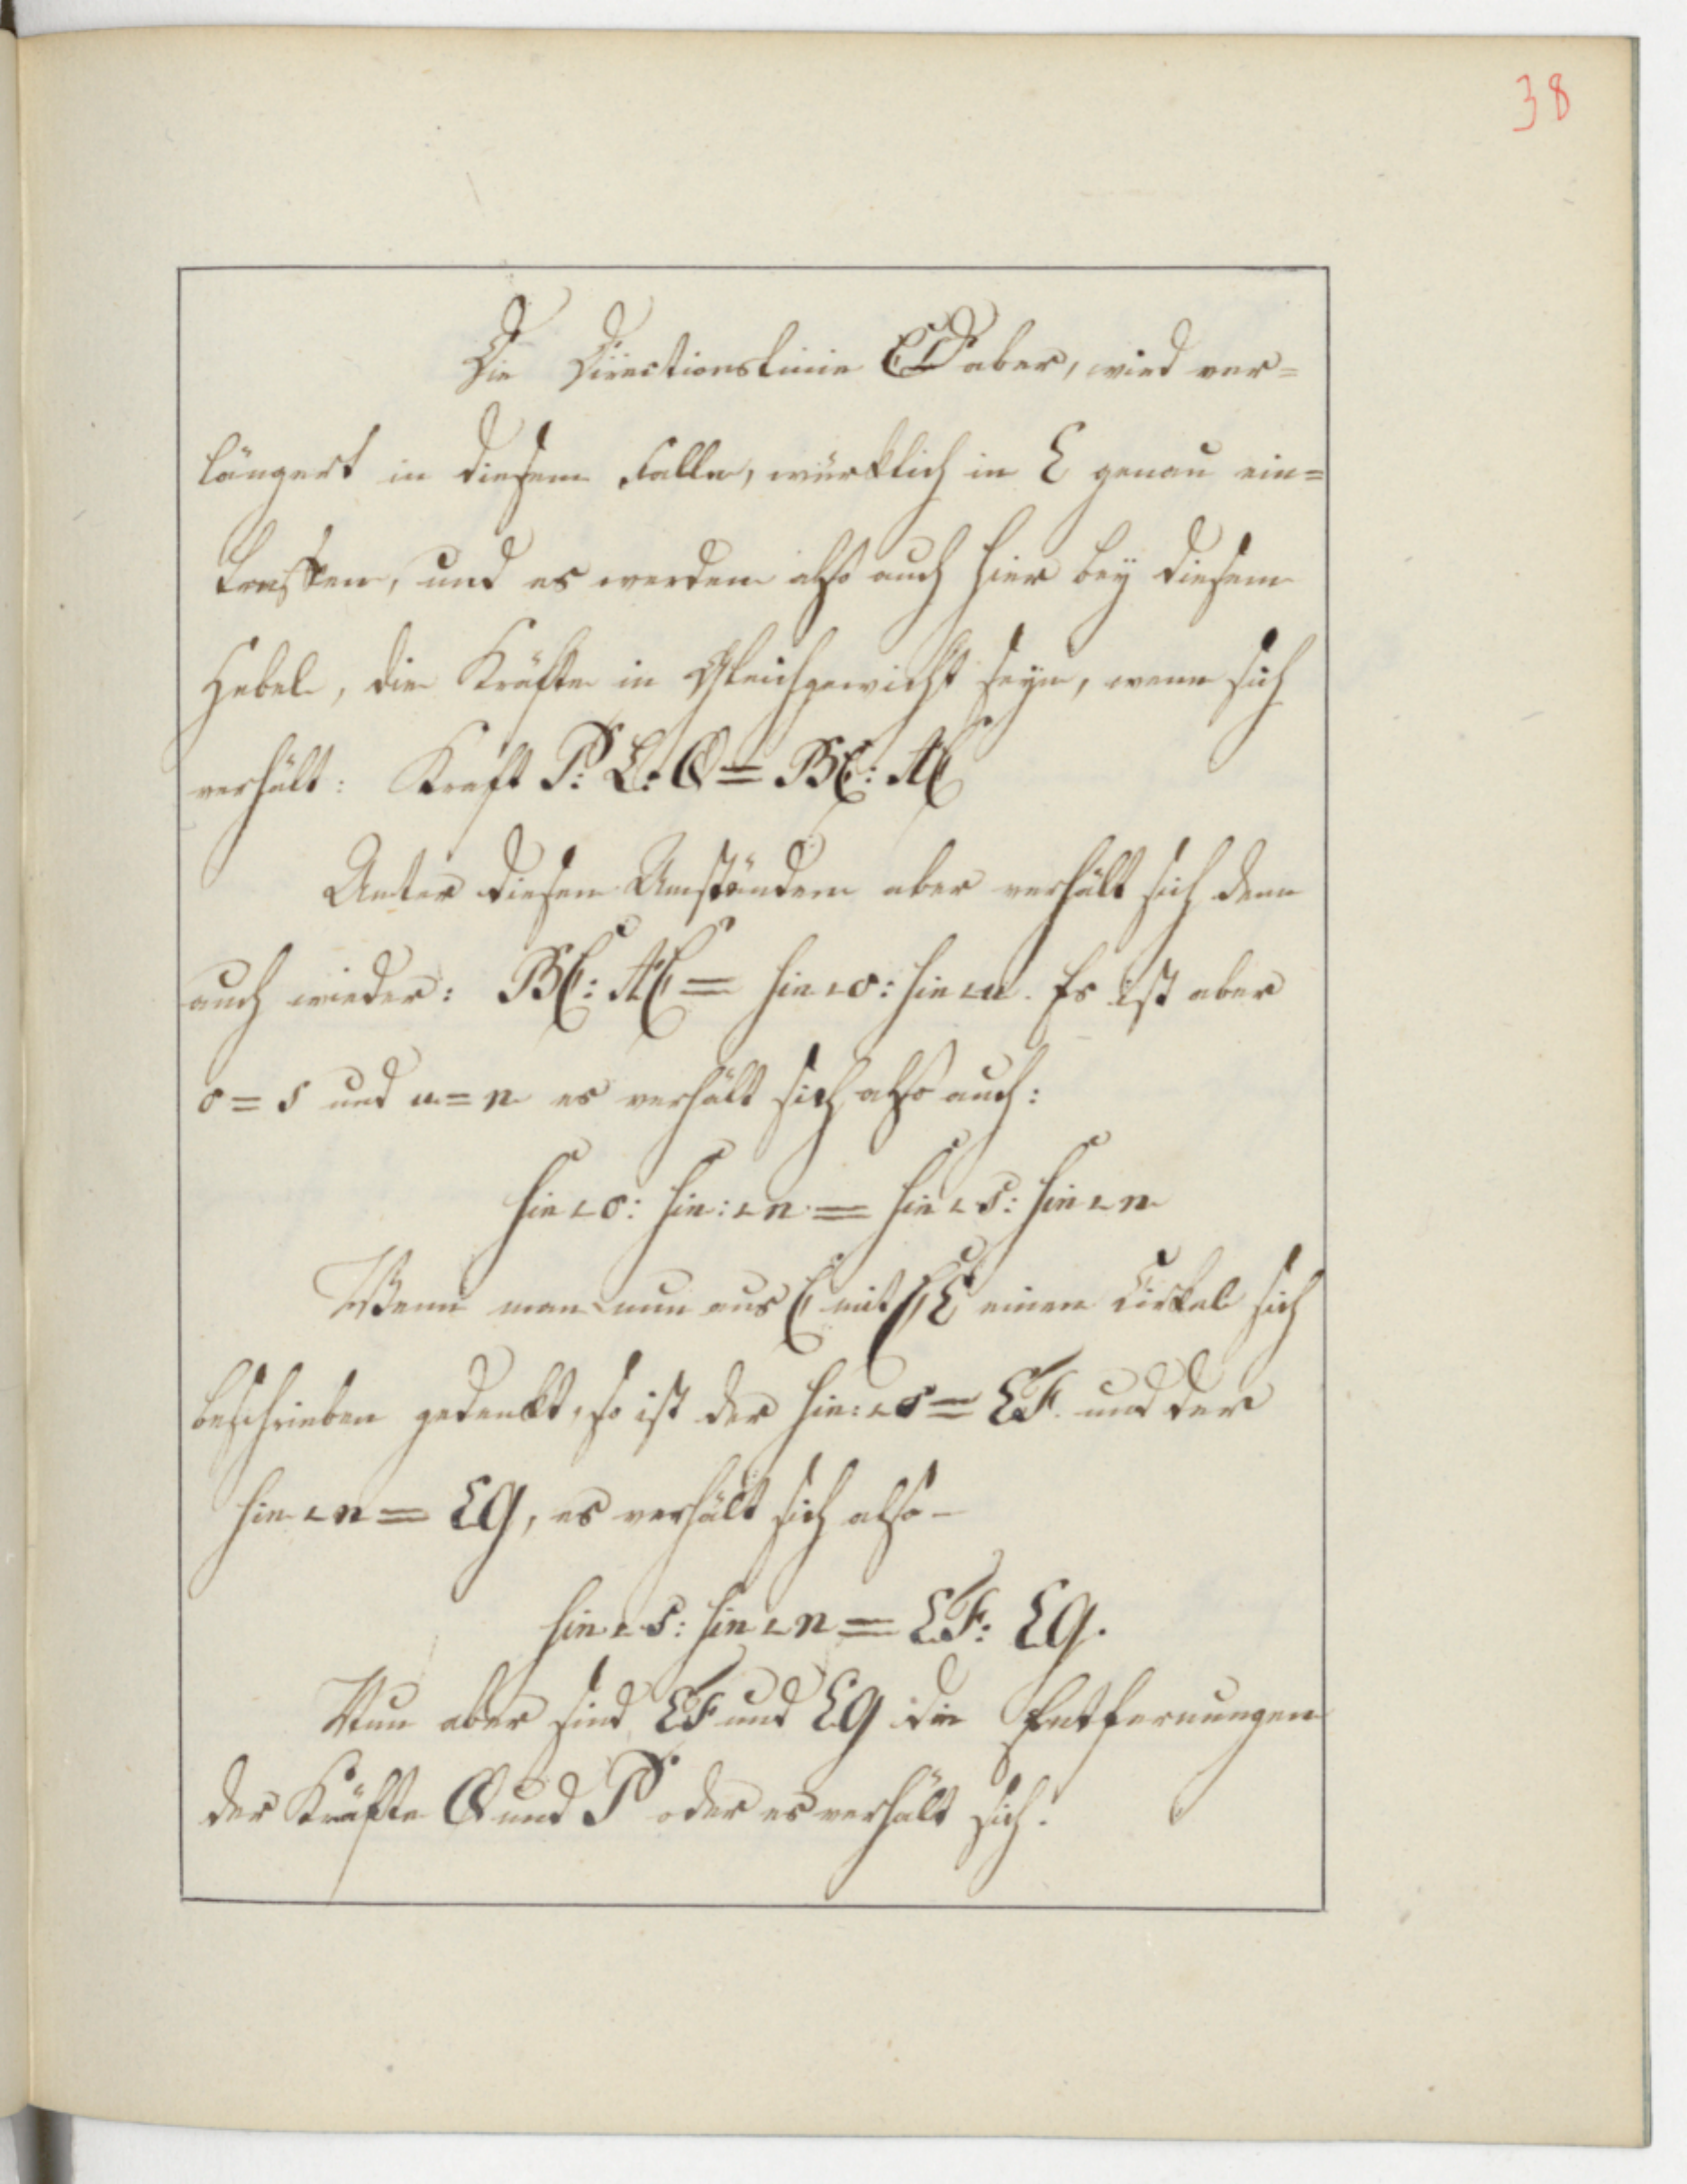 38
Die Directionslinie CD aber, wird ver=
längert in diesem Falle, würklich in E genau ein=
treffen, und es werden also auch hier bey diesem
Hebel, die Kräfte in Gleichgewicht seyn, wenn sich
verhält: Kraft P: L: Q = BC: AC
Unter diesen Umständen aber verhält sich denn
auch wieder: BC: AC = sin ∠ o: sin ∠ u. Es ist aber
o = s und u = n es verhält sich also auch:
sin ∠ o: sin: ∠ n = sin ∠ s: sin ∠ n
Wenn man nun aus C mit CE einen Cirkel sich
beschrieben gedenkt, so ist der sin: ∠ s = EF. und der
sin ∠ n = EG, es verhält sich also –
sin ∠ s: sin ∠ n = EF: EG.
Nun aber sind EF und EG die Entfernungen
der Kräfte Q und P oder es verhält sich: